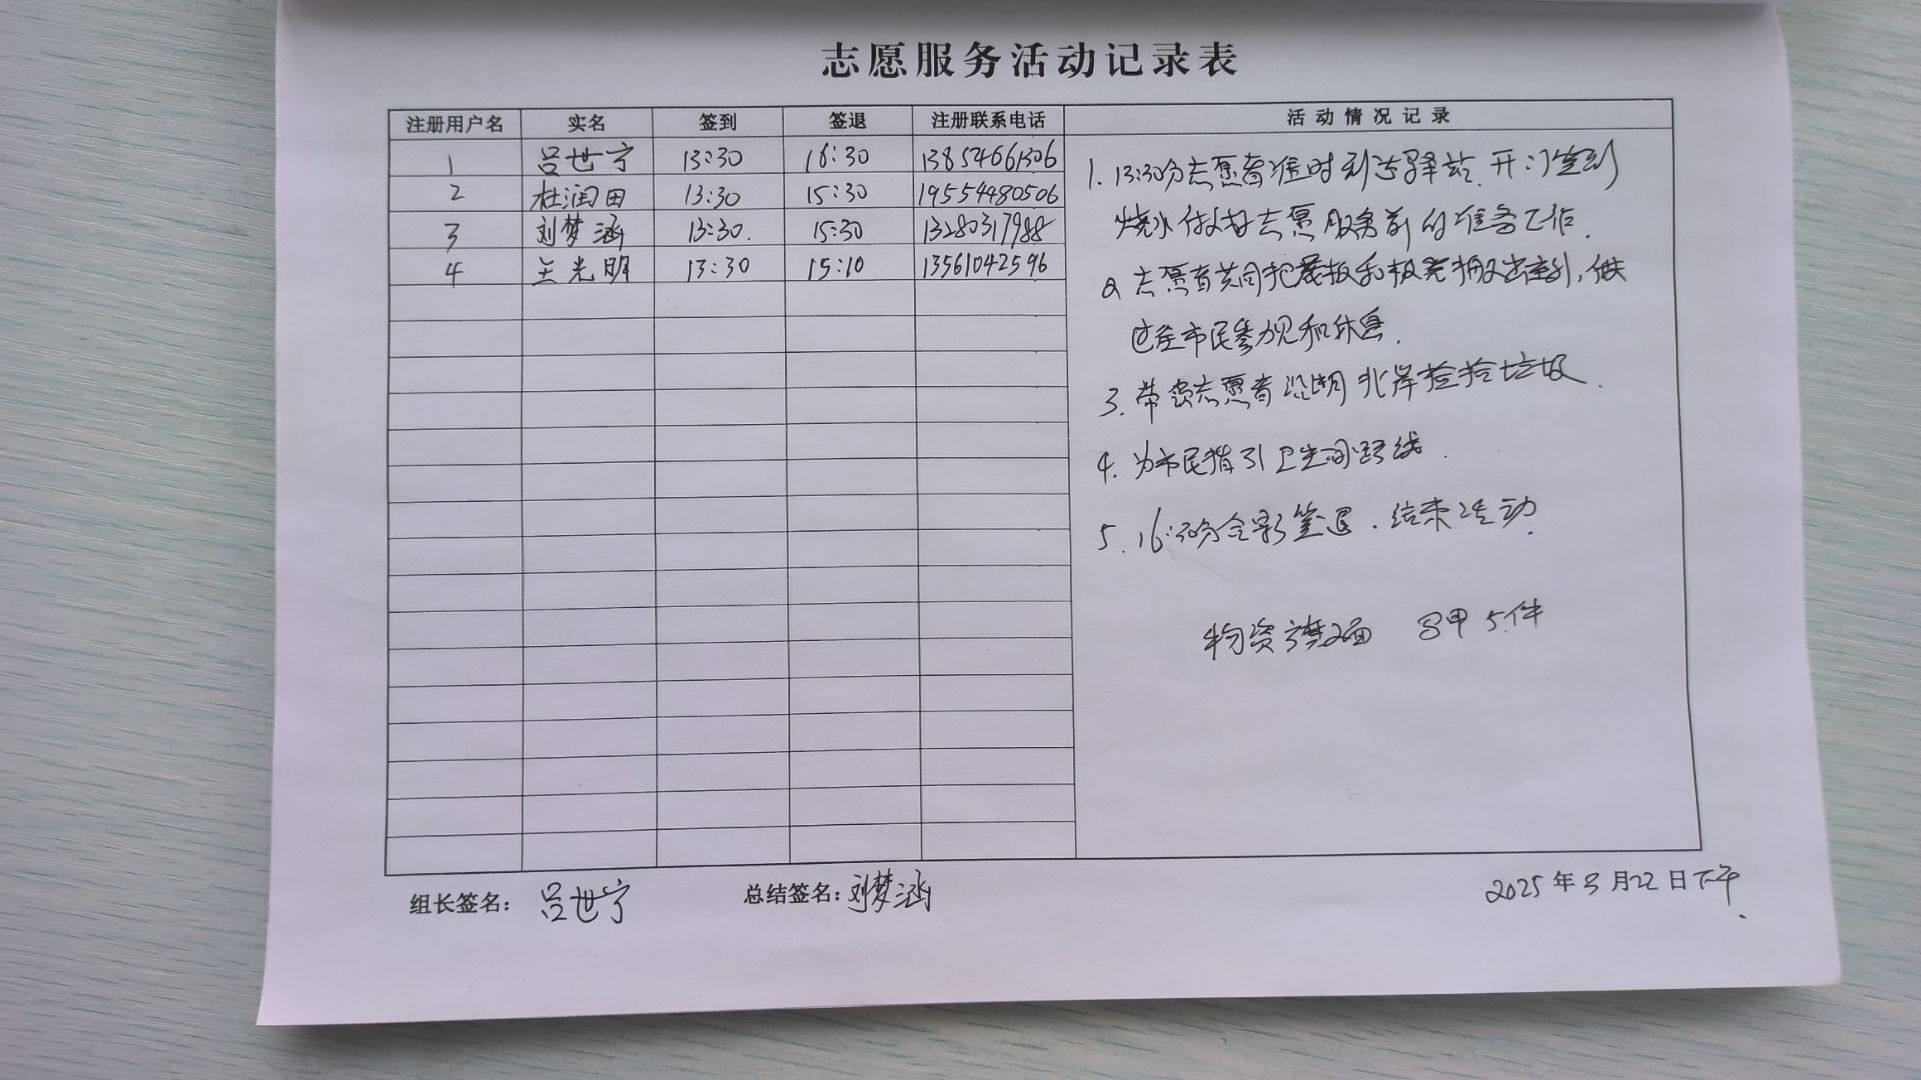 志愿服务活动记录表
注册用户名 实名 签到 签退 注册联系电话 活动情况记录
1 吕世宁 13:30 16:30 13854661306
2 杜润田 13:30 15:30 19554480506
3 刘梦涵 13:30. 15:30 13280317988
4 王光明 13:30 15:10 13561042596
1. 13:30分志愿者准时到达驿站.开门签到
烧水做好志愿服务前的准备工作.
2 志愿者共同把展板和板凳搬出室外,供
过往市民参观和休息.
3. 带领志愿者沿湖北岸捡拾垃圾.
4. 为市民指引卫生间路线.
5. 16:30分合影签退.结束活动.
物资旗2面 马甲5件
组长签名: 吕世宁 总结签名:刘梦涵 2025年3月22日下午.